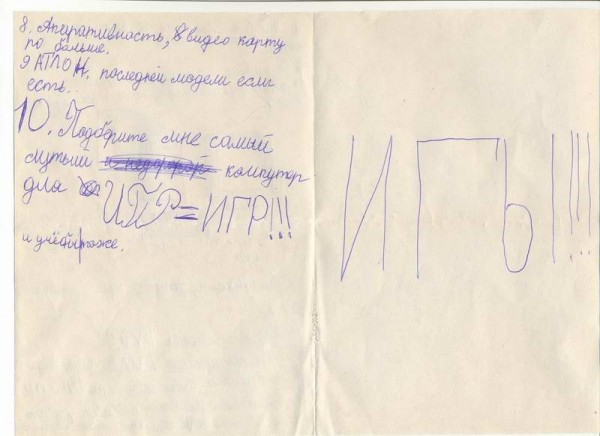 8. Аперативность, видео карту
по больше.
9 АТЛОН. последней модели если
есть.
10. Подберите мне самый
и недорогой компутор
для ИГР=ИГР!!!
и учёбы тоже.
ИГЫ!!!